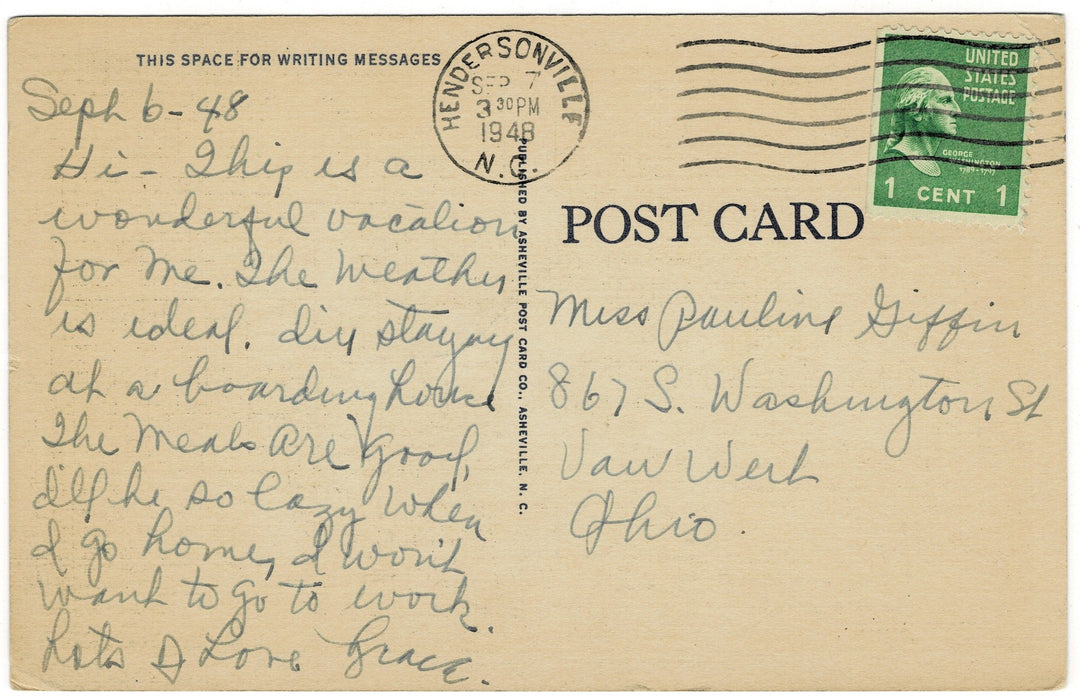 THIS SPACE FOR WRITING MESSAGES
Sept 6-48
Hi - This is a
wonderful vacation
for me. The weather
is ideal. I'm staying
at a boarding house
The meals are good,
I'll be so lazy when
I go home, I won't
want to go to work.
Lots of Love Grace.
HENDERSONVILLE
SEP 7
3 30 PM
1948
N.C.
PUBLISHED BY ASHEVILLE POST CARD CO., ASHEVILLE, N. C.
UNITED
STATES
POSTAGE
GEORGE
WASHINGTON
1 CENT 1
POST CARD
Miss Pauline Giffin
867 S. Washington St
Van Wert
Ohio.